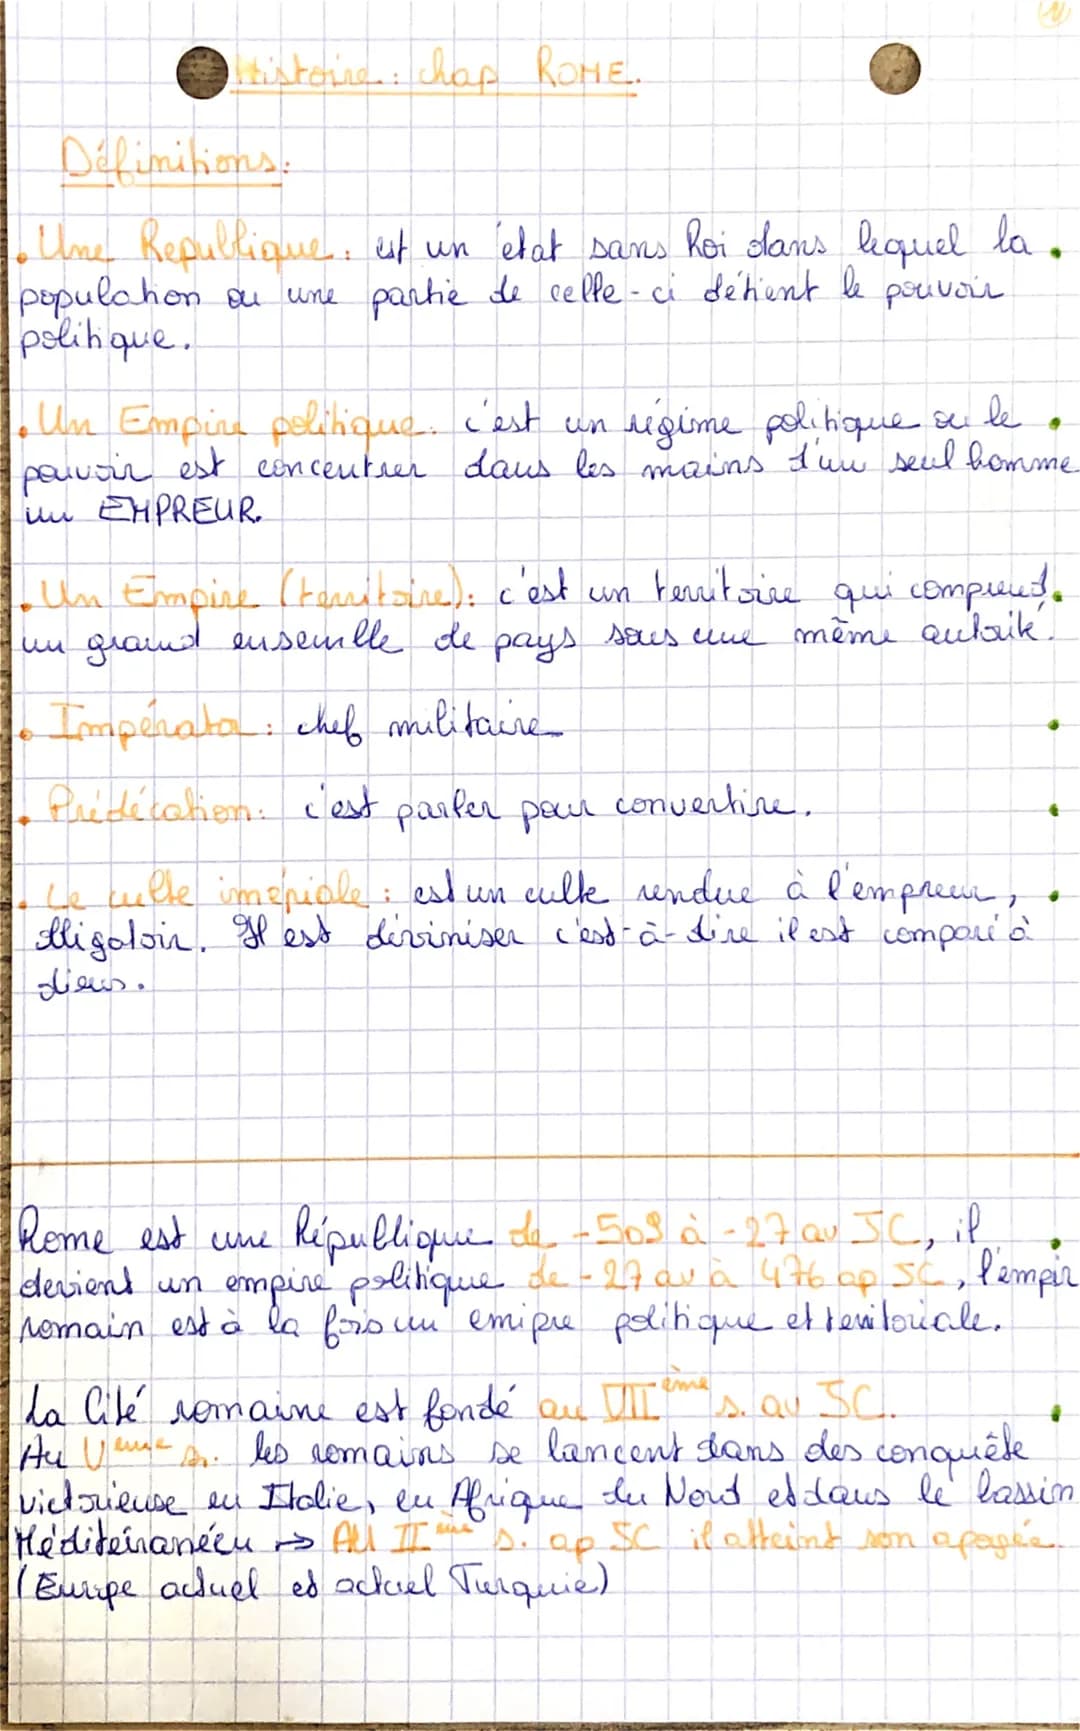 Histoire : chap ROME.
Définitions :
. Une Republique : est un état sans Roi dans lequel la .
population ou une partie de celle-ci détient le pouvoir
politique.
. Un Empire politique : c'est un régime politique ou le .
pouvoir est concentrer dans les mains d'un seul homme
un EMPREUR.
. Un Empire (territoire) : c'est un territoire qui comprend .
un grand ensemble de pays sous une même autorité.
. Impérator : chef militaire
. Prédécation : c'est parler pour convertire.
. Le culte impériale : est un culte rendue à l'empreur,
Il est diviniser c'est-à-dire il est comparé à
dieus.
Rome est une République de -509 à -27 av JC, il
devient un empire politique de -27 av à 476 ap JC, l'empir
romain est à la fois un emipre politique et territoriale.
La Cité romaine est fondé au VIII ème s. av JC.
Au Vème s. les romains se lancent dans des conquête
victorieuse en Italie, en Afrique du Nord et dans le bassin
Méditéranéen → AU II ème s. ap JC il atteint son apogée.
(Europe actuel et actuel Turquie)